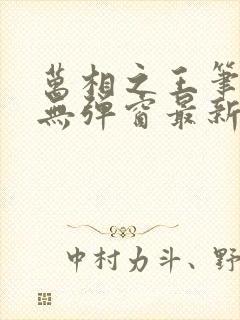 萬相之王筆
無彈窗最新
中村力斗、野